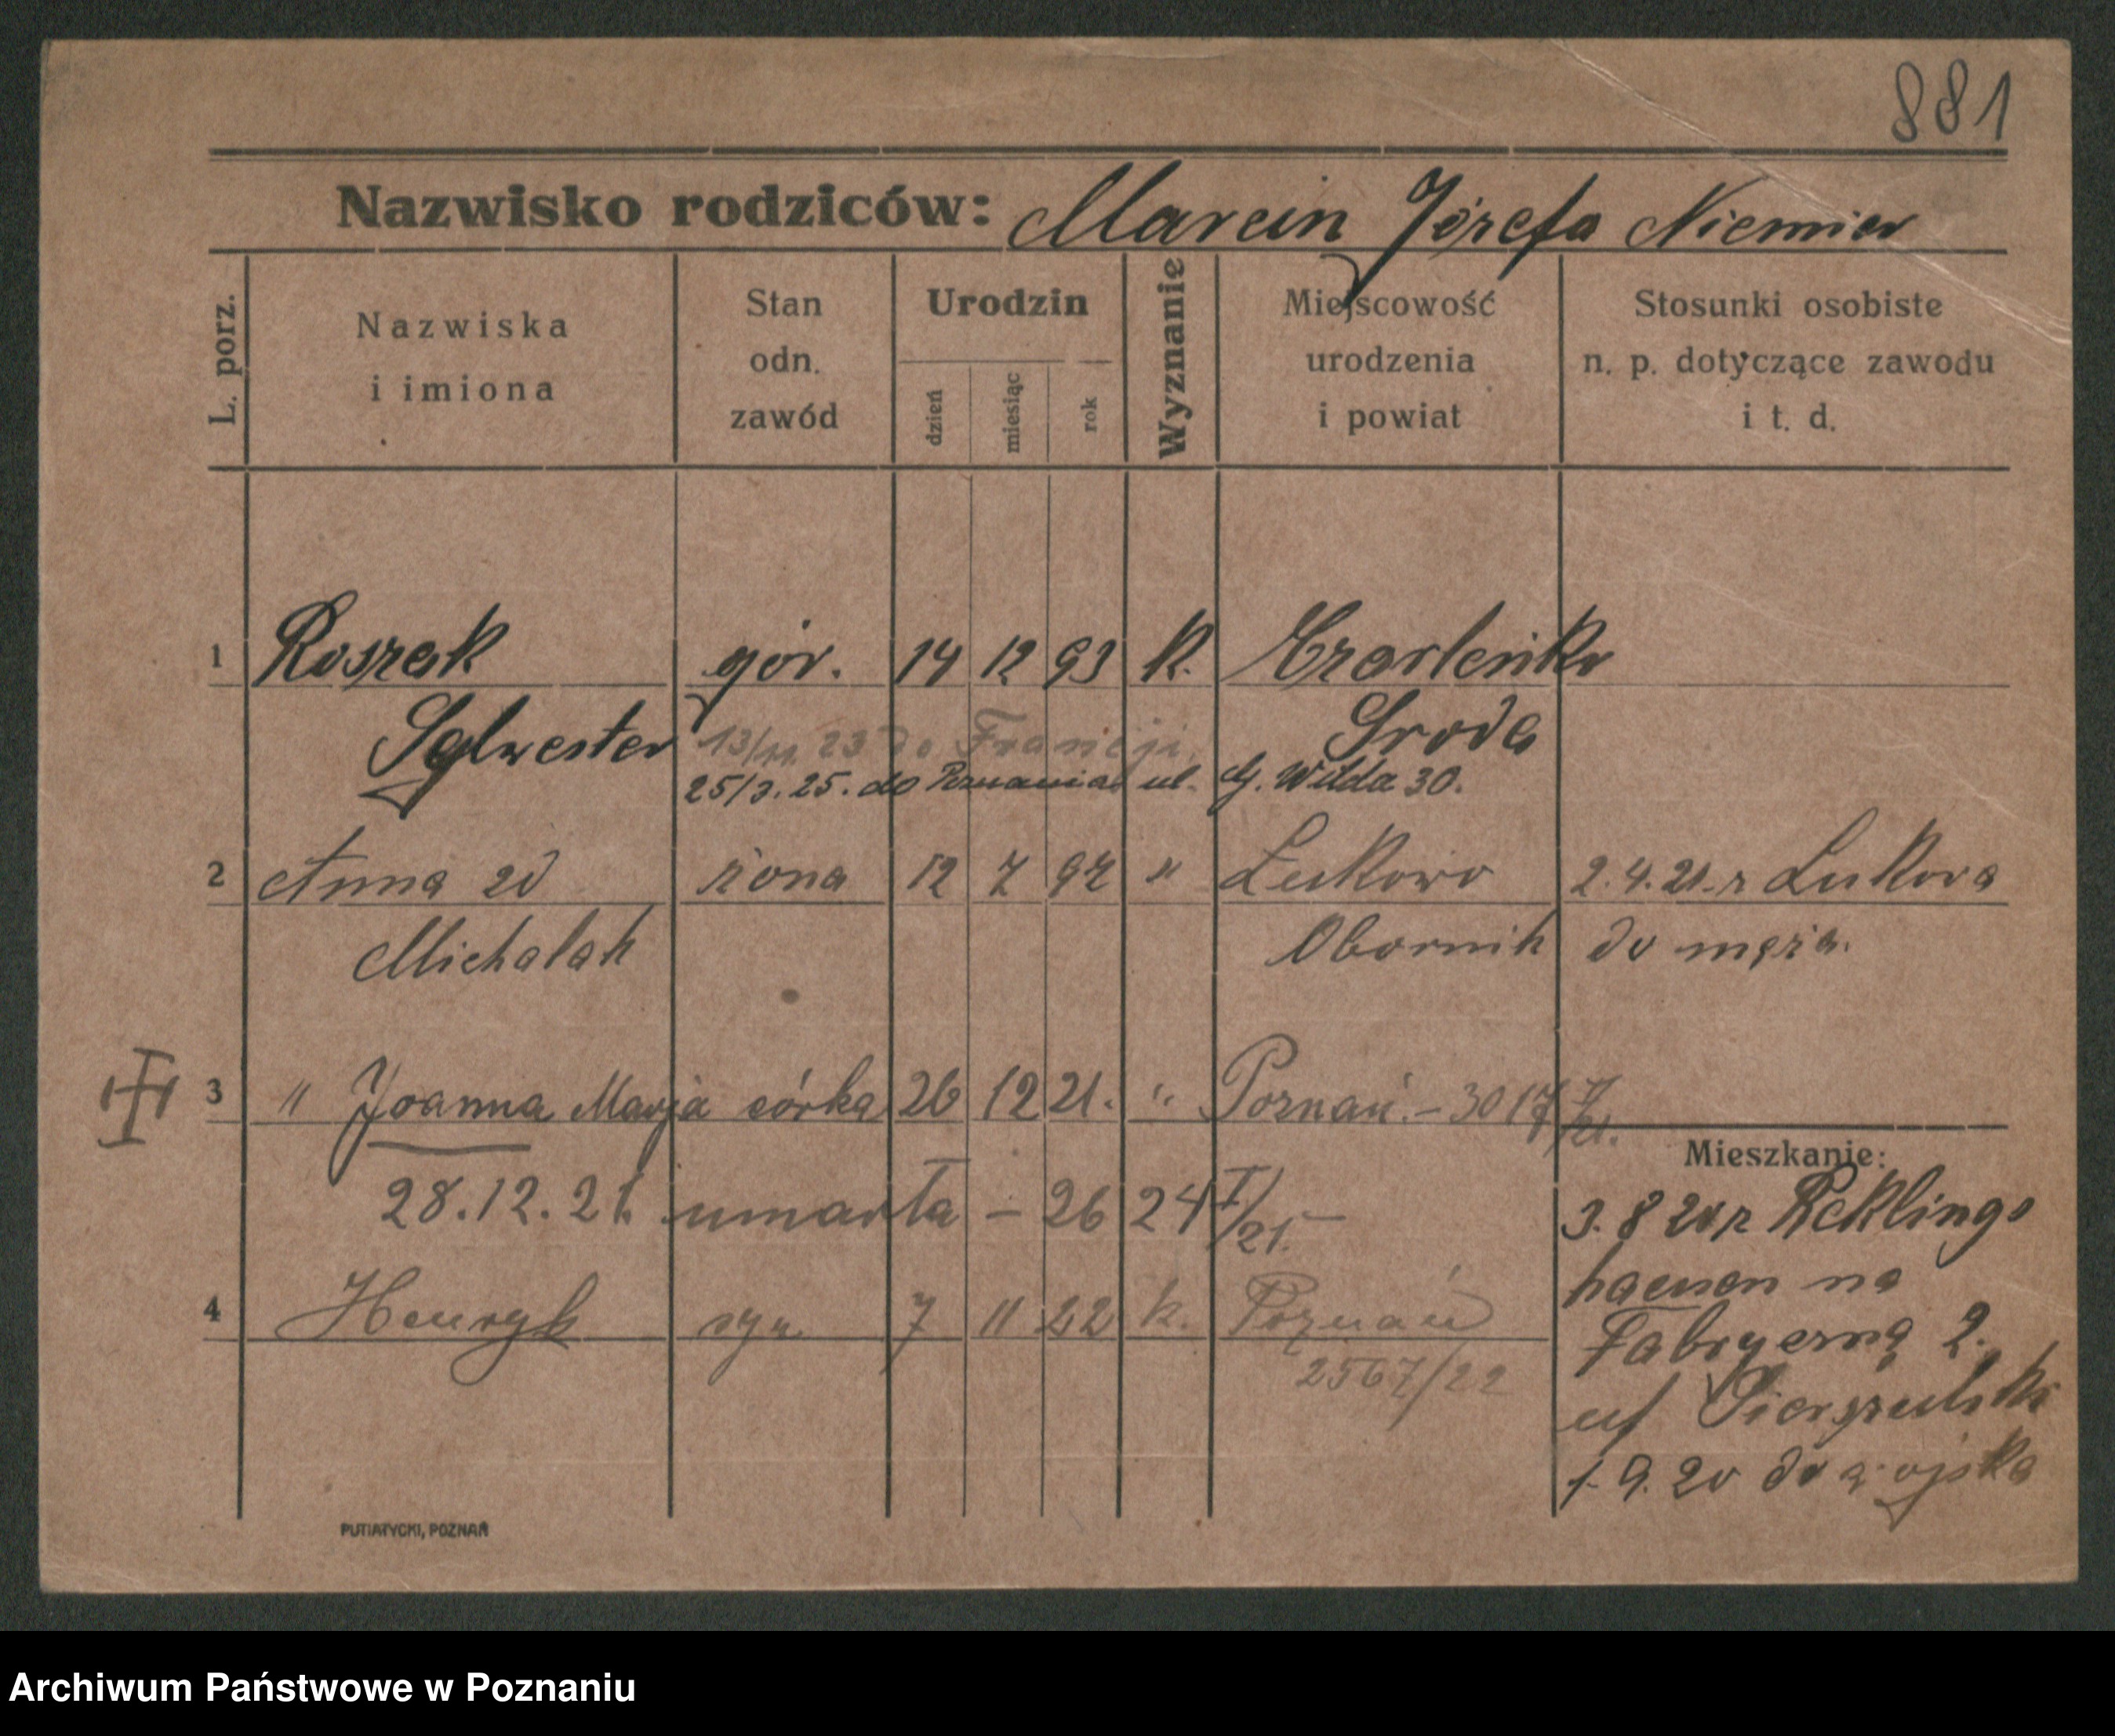 881
Nazwisko rodziców: Marcin Józefa Niemier
L. porz.
Nazwiska i imiona
Stan odn. zawód
Urodzin
dzień miesiąc rok
Wyznanie
Miejscowość urodzenia i powiat
Stosunki osobiste n. p. dotyczące zawodu i t. d.
1 Roszak gór. 14 12 93 K.
Sylwester Środa
13/11. 23 do Francji
25/3. 25. do Poznania ul. G. Wilda 30.
2 Anna zd żona 12 7 97 " Łukowo 2.4.21. z Łukowa
Michalak Obornik do męża.
3 " Joanna Marja córka 26 12 21. " Poznań. - 3017/21.
28.12.21. umarła - 26 24 I/21. -
4 Henryk syn 7 11 22 k. Poznań
2567/22
Mieszkanie:
3.8 20 z Reklings
hausen na
Fabryczną 2.
1.9.20 do wojska
PUTIATYCKI, POZNAŃ
Archiwum Państwowe w Poznaniu